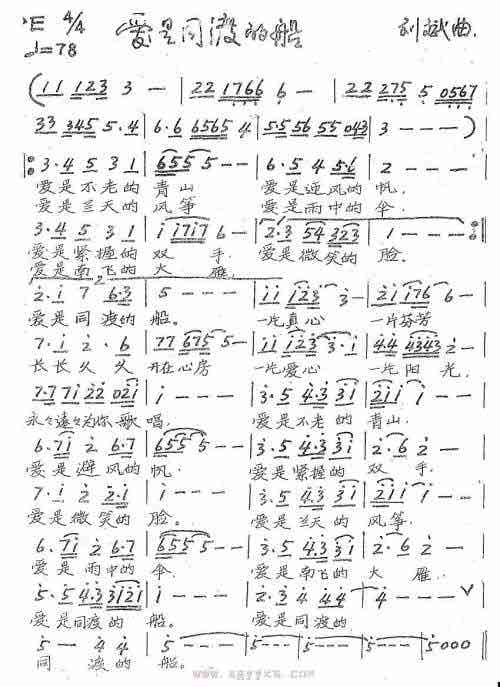 ᵇE 4/4 爱是同渡的船 刘斌曲.
♩=78
(11 123 3 — | 22 1766 6 — | 22 275 5 0567
33 345 5·4 | 6·6 6565 4 | 5·5 56 55 043 | 3 — — — )
3·4 5 3 1 | 655 5 — — | 6·5 4 5·i | 2 — — —
爱是不老的 青山 爱是迎风的 帆.
爱是兰天的 风筝 爱是雨中的 伞.
3·4 5 3 1 | i i7i7 6 — | 2·3 54 323 | 1 — — —
爱是紧握的 双 手. 爱是微笑的 脸.
爱是南飞的 大 雁.
2·i 7 6·3 | 5 — — — | ii i23 3 — | 2i i76 6 —
爱是同渡的 船。 一片真心 一片芬芳
7·i 2·6 | 77 675 5 — | ii i23 3·i | 44 4343 2 —
长长久久 开在心房 一片爱心 一片阳光,
7·7 7i 22 02i | i — — — | 3·5 4·3 3i | 2ii i — —
永々遠々为你歌 唱. 爱是不老的 青山.
6·7i 2 6·7 | 655 5 — — | 3·5 4·3 3i | 2·6 2 —
爱是避风的 帆. 爱是紧握的 双 手.
7·i 2 2·i | i — — — | 3·5 4·3 3i | 2ii i — —
爱是微笑的 脸。 爱是兰天的 风筝.
6·7i 2 6·7 | 655 5 — — | 3·5 4·3 3i | 2·6 2 —
爱是雨中的 伞. 爱是南飞的 大 雁.
5·5 4·3 3i2i | i — — — | 2·3 4 44 | 4 — — — V
爱是同渡的 船。 爱是同渡的
5 — 4 4 | 5 — — — | 5 — — — | 5 — — — | 5 — — — | 5000
同 渡的 船。